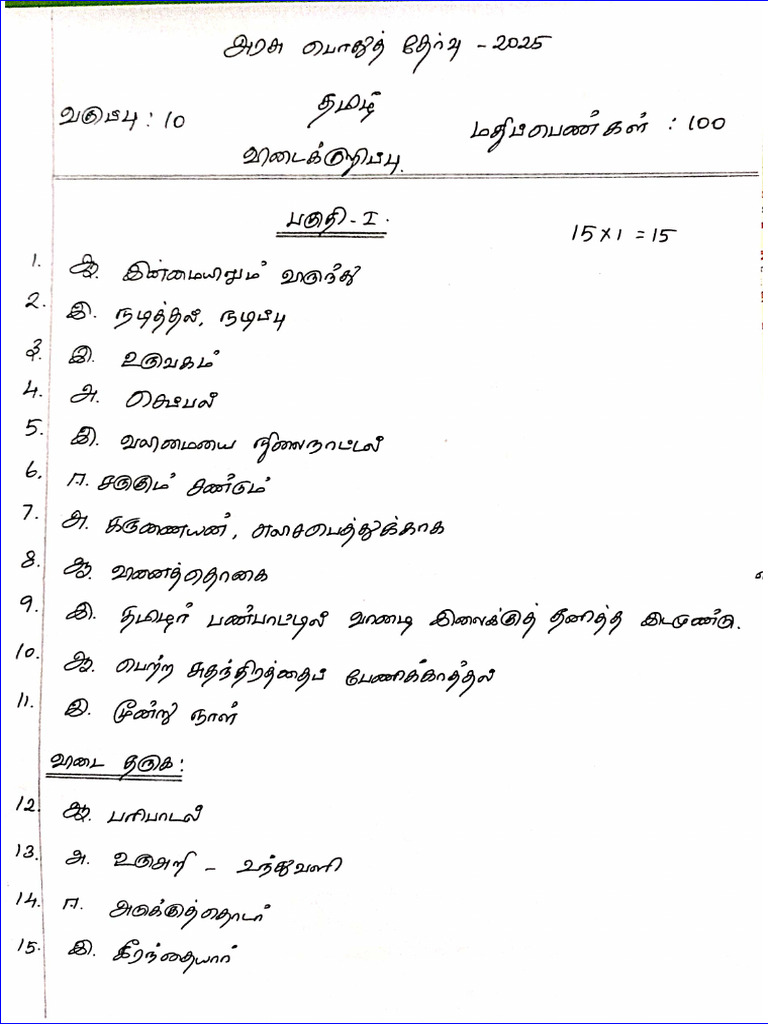 அரசு பொதுத் தேர்வு - 2025
தமிழ்
வகுப்பு : 10
மதிப்பெண்கள் : 100
விடைக்குறிப்பு.
பகுதி - I.
15 x 1 = 15
1. ஆ. இன்மையிலும் விருந்து
2. இ. நடித்தல், நடிப்பு
3. இ. உருவகம்
4. அ. செப்பல்
5. இ. வலிமையை நிலைநாட்டல்
6. ஈ. சருகும் சண்டும்
7. அ. கருணையன், எலிசபெத்துக்காக
8. ஆ. வினைத்தொகை
9. இ. தமிழர் பண்பாட்டில் வாழை இலைக்குத் தனித்த இடமுண்டு.
10. ஆ. பெற்ற சுதந்திரத்தைப் பேணிக்காத்தல்
11. இ. மூன்று நாள்
விடை தருக :
12. ஆ. பரிபாடல்
13. அ. உருஅறி - உந்துவளி
14. ஈ. அடுக்குத்தொடர்
15. இ. கீரந்தையார்